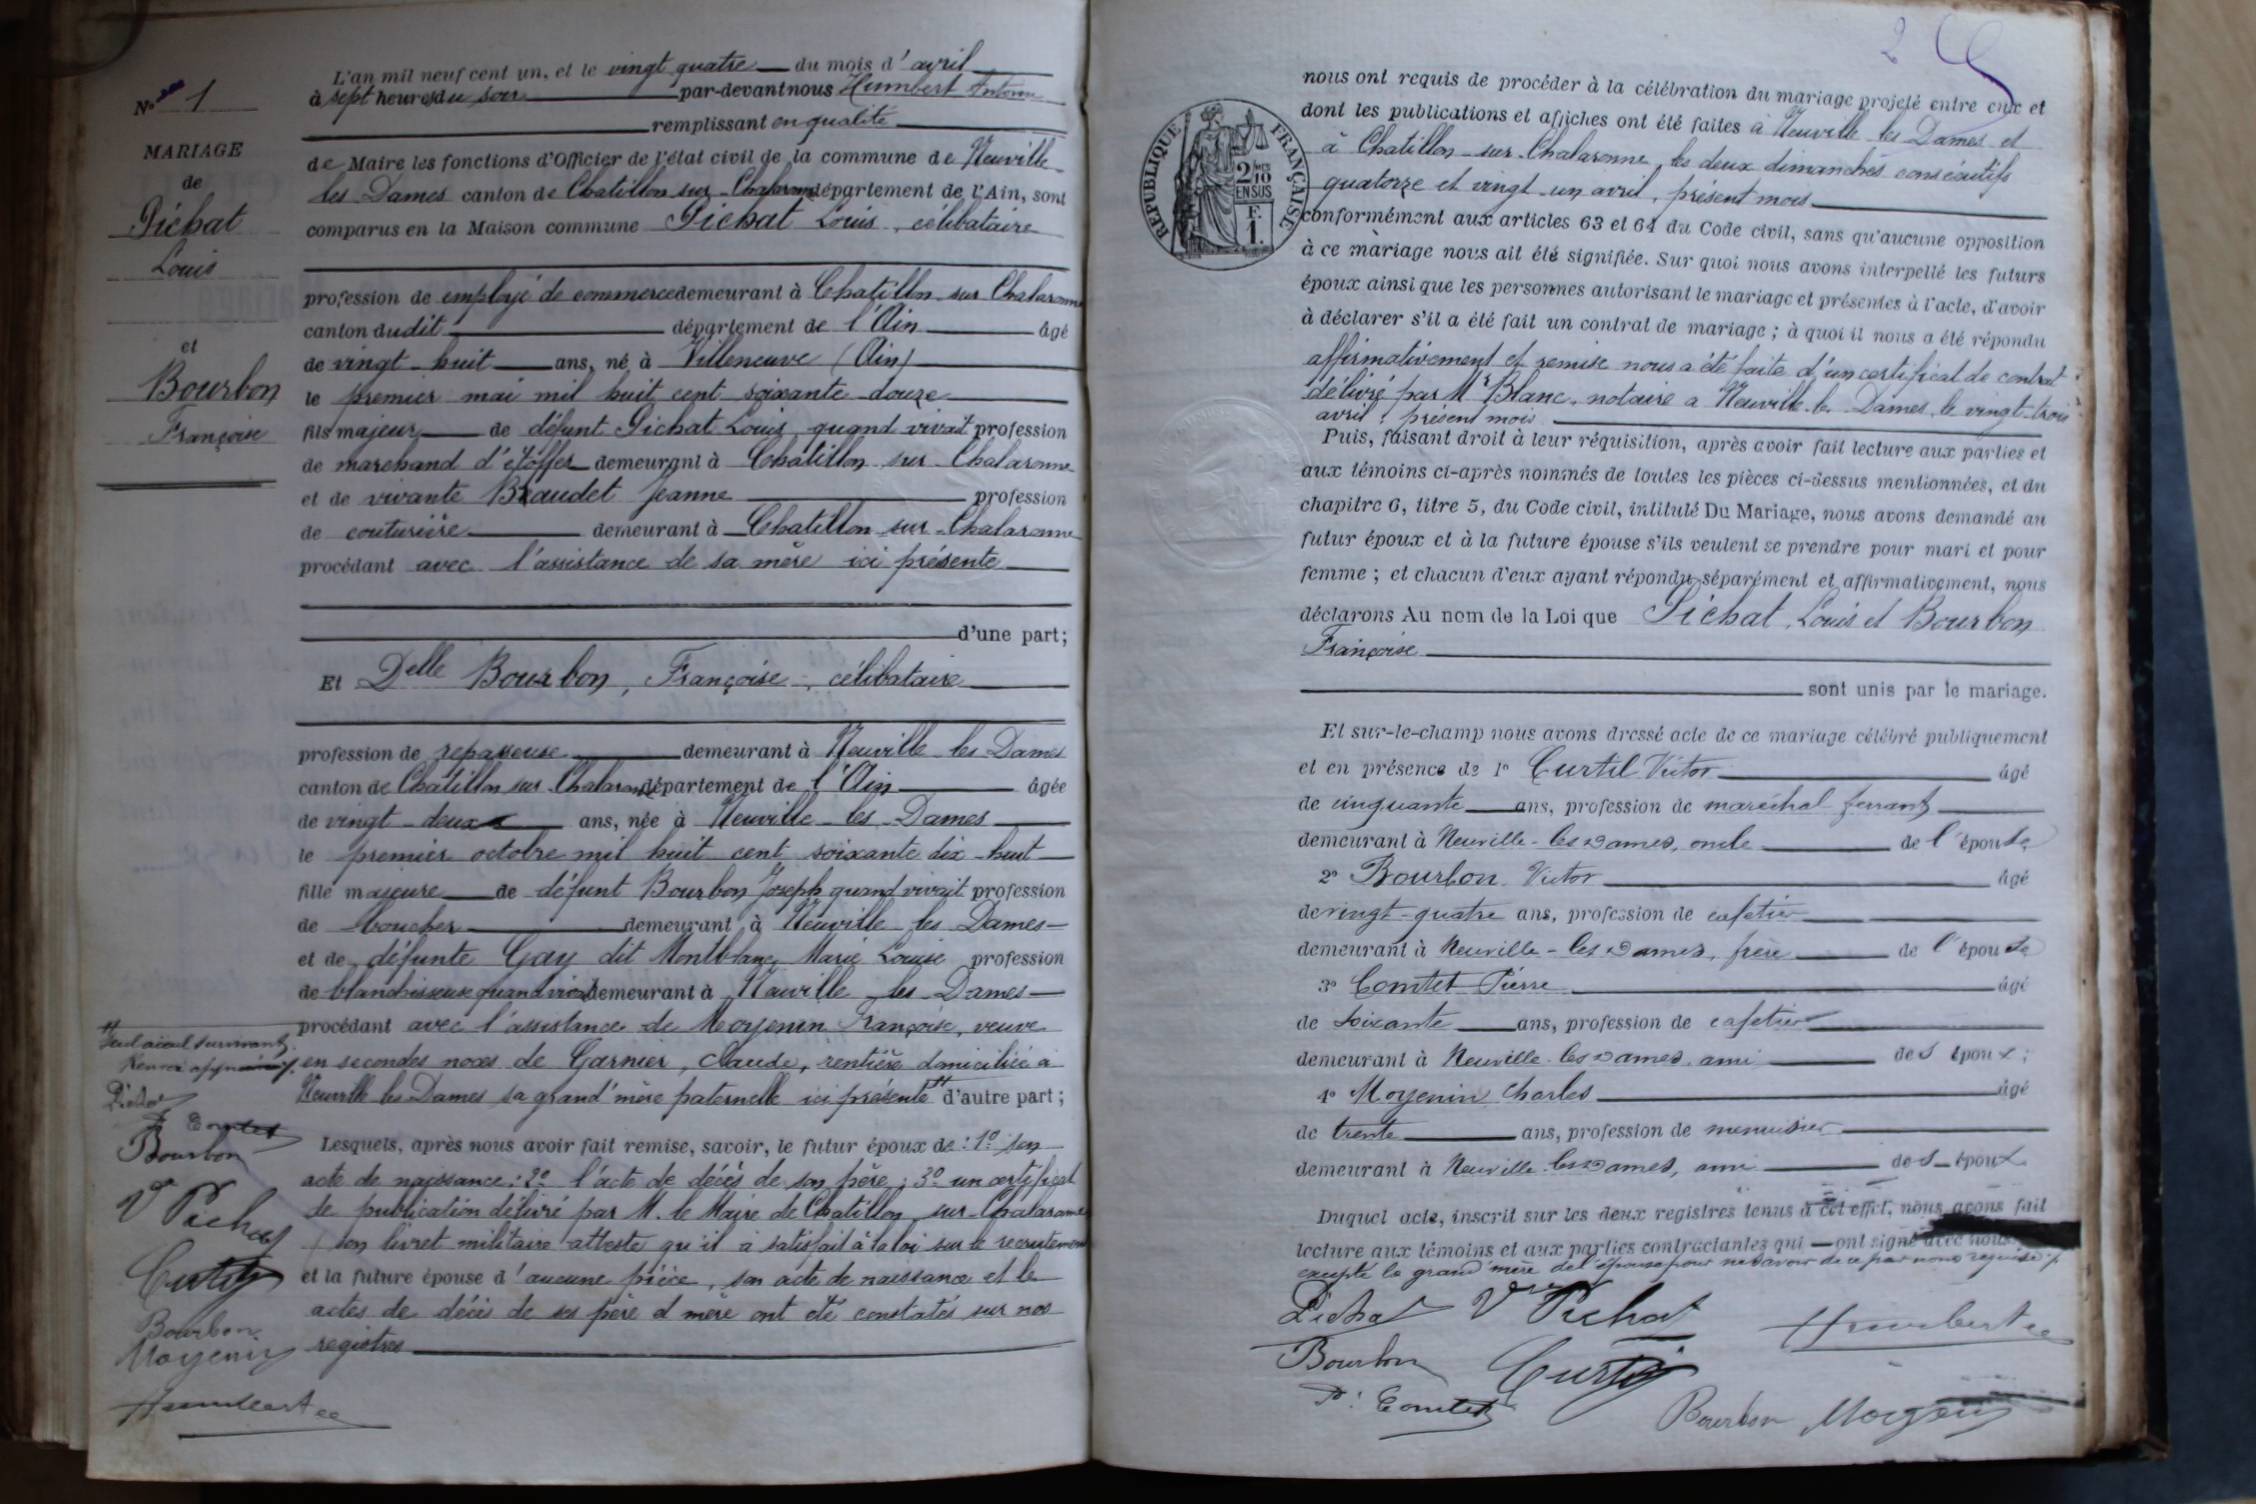 No 1
MARIAGE
de
Pichat
Louis
et
Bourbon
Françoise
L'an mil neuf cent un, et le vingt quatre du mois d'avril
à sept heures du soir par-devant nous Humbert Antoine
remplissant en qualité
de Maire les fonctions d'Officier de l'état civil de la commune de Neuville
les Dames canton de Chatillon sur Chalaronne département de l'Ain, sont
comparus en la Maison commune Pichat Louis, célibataire
profession de employé de commerce demeurant à Chatillon sur Chalaronne
canton dudit département de l'Ain âgé
de vingt huit ans, né à Villeneuve (Ain)
le premier mai mil huit cent soixante douze
fils majeur de défunt Pichat Louis, quand vivait profession
de marchand d'étoffes demeurant à Chatillon sur Chalaronne
et de vivante Braudet Jeanne profession
de couturière demeurant à Chatillon sur Chalaronne
procédant avec l'assistance de sa mère ici présente
d'une part;
Et Delle Bourbon, Françoise, célibataire
profession de repasseuse demeurant à Neuville les Dames
canton de Chatillon sur Chalaronne département de l'Ain âgée
de vingt deux ans, née à Neuville les Dames
le premier octobre mil huit cent soixante dix huit
fille majeure de défunt Bourbon Joseph quand vivait profession
de boucher demeurant à Neuville les Dames
et de défunte Gay dit Montblanc Marie Louise profession
de blanchisseuse quand vivait demeurant à Neuville les Dames
procédant avec l'assistance de Moyenin Françoise, veuve
en secondes noces de Garnier, Claude, rentière domiciliée à
Neuville les Dames sa grand'mère paternelle ici présente # d'autre part;
# seul aïeul survivant.
Renvoi approuvé
Pichat
P. Comtet
Bourbon
Vve Pichat
Curtil
Bourbon
Moyenin
Humbert
Lesquels, après nous avoir fait remise, savoir, le futur époux de: 1o son
acte de naissance: 2o l'acte de décès de son père; 3o un certificat
de publication délivré par M. le Maire de Chatillon sur Chalaronne
son livret militaire atteste qu'il a satisfait à la loi sur le recrutement
et la future épouse d'aucune pièce, son acte de naissance et le
actes de décès de ses père et mère ont été constatés sur nos
registres
2
RÉPUBLIQUE FRANÇAISE
2/10 EN SUS
F. 1.
nous ont requis de procéder à la célébration du mariage projeté entre eux et
dont les publications et affiches ont été faites à Neuville les Dames et
à Chatillon sur Chalaronne, les deux dimanches consécutifs
quatorze et vingt un avril, présent mois
conformément aux articles 63 et 64 du Code civil, sans qu'aucune opposition
à ce mariage nous ait été signifiée. Sur quoi nous avons interpellé les futurs
époux ainsi que les personnes autorisant le mariage et présentes à l'acte, d'avoir
à déclarer s'il a été fait un contrat de mariage; à quoi il nous a été répondu
affirmativement et remise nous a été faite d'un certificat de contrat
délivré par Mr Blanc, notaire à Neuville les Dames le vingt-trois
avril, présent mois
Puis, faisant droit à leur réquisition, après avoir fait lecture aux parties et
aux témoins ci-après nommés de toutes les pièces ci-dessus mentionnées, et du
chapitre 6, titre 5, du Code civil, intitulé Du Mariage, nous avons demandé au
futur époux et à la future épouse s'ils veulent se prendre pour mari et pour
femme; et chacun d'eux ayant répondu séparément et affirmativement, nous
déclarons Au nom de la Loi que Pichat, Louis et Bourbon
Françoise
sont unis par le mariage.
Et sur-le-champ nous avons dressé acte de ce mariage célébré publiquement
et en présence de 1o Curtil Victor âgé
de cinquante ans, profession de maréchal ferrant
demeurant à Neuville-les-Dames, oncle de l'épouse
2o Bourbon Victor âgé
de vingt-quatre ans, profession de cafetier
demeurant à Neuville-les-Dames, frère de l'épouse
3o Comtet Pierre âgé
de soixante ans, profession de cafetier
demeurant à Neuville-les-Dames, ami des époux;
4o Moyenin Charles âgé
de trente ans, profession de menuisier
demeurant à Neuville-les-Dames, ami des époux
Duquel acte, inscrit sur les deux registres tenus à cet effet, nous avons fait
lecture aux témoins et aux parties contractantes qui ont signé avec nous
excepté la grand'mère de l'épouse pour ne savoir de ce par nous requise
Pichat Vve Pichat Humbert
Bourbon Curtil
P. Comtet Bourbon Moyenin